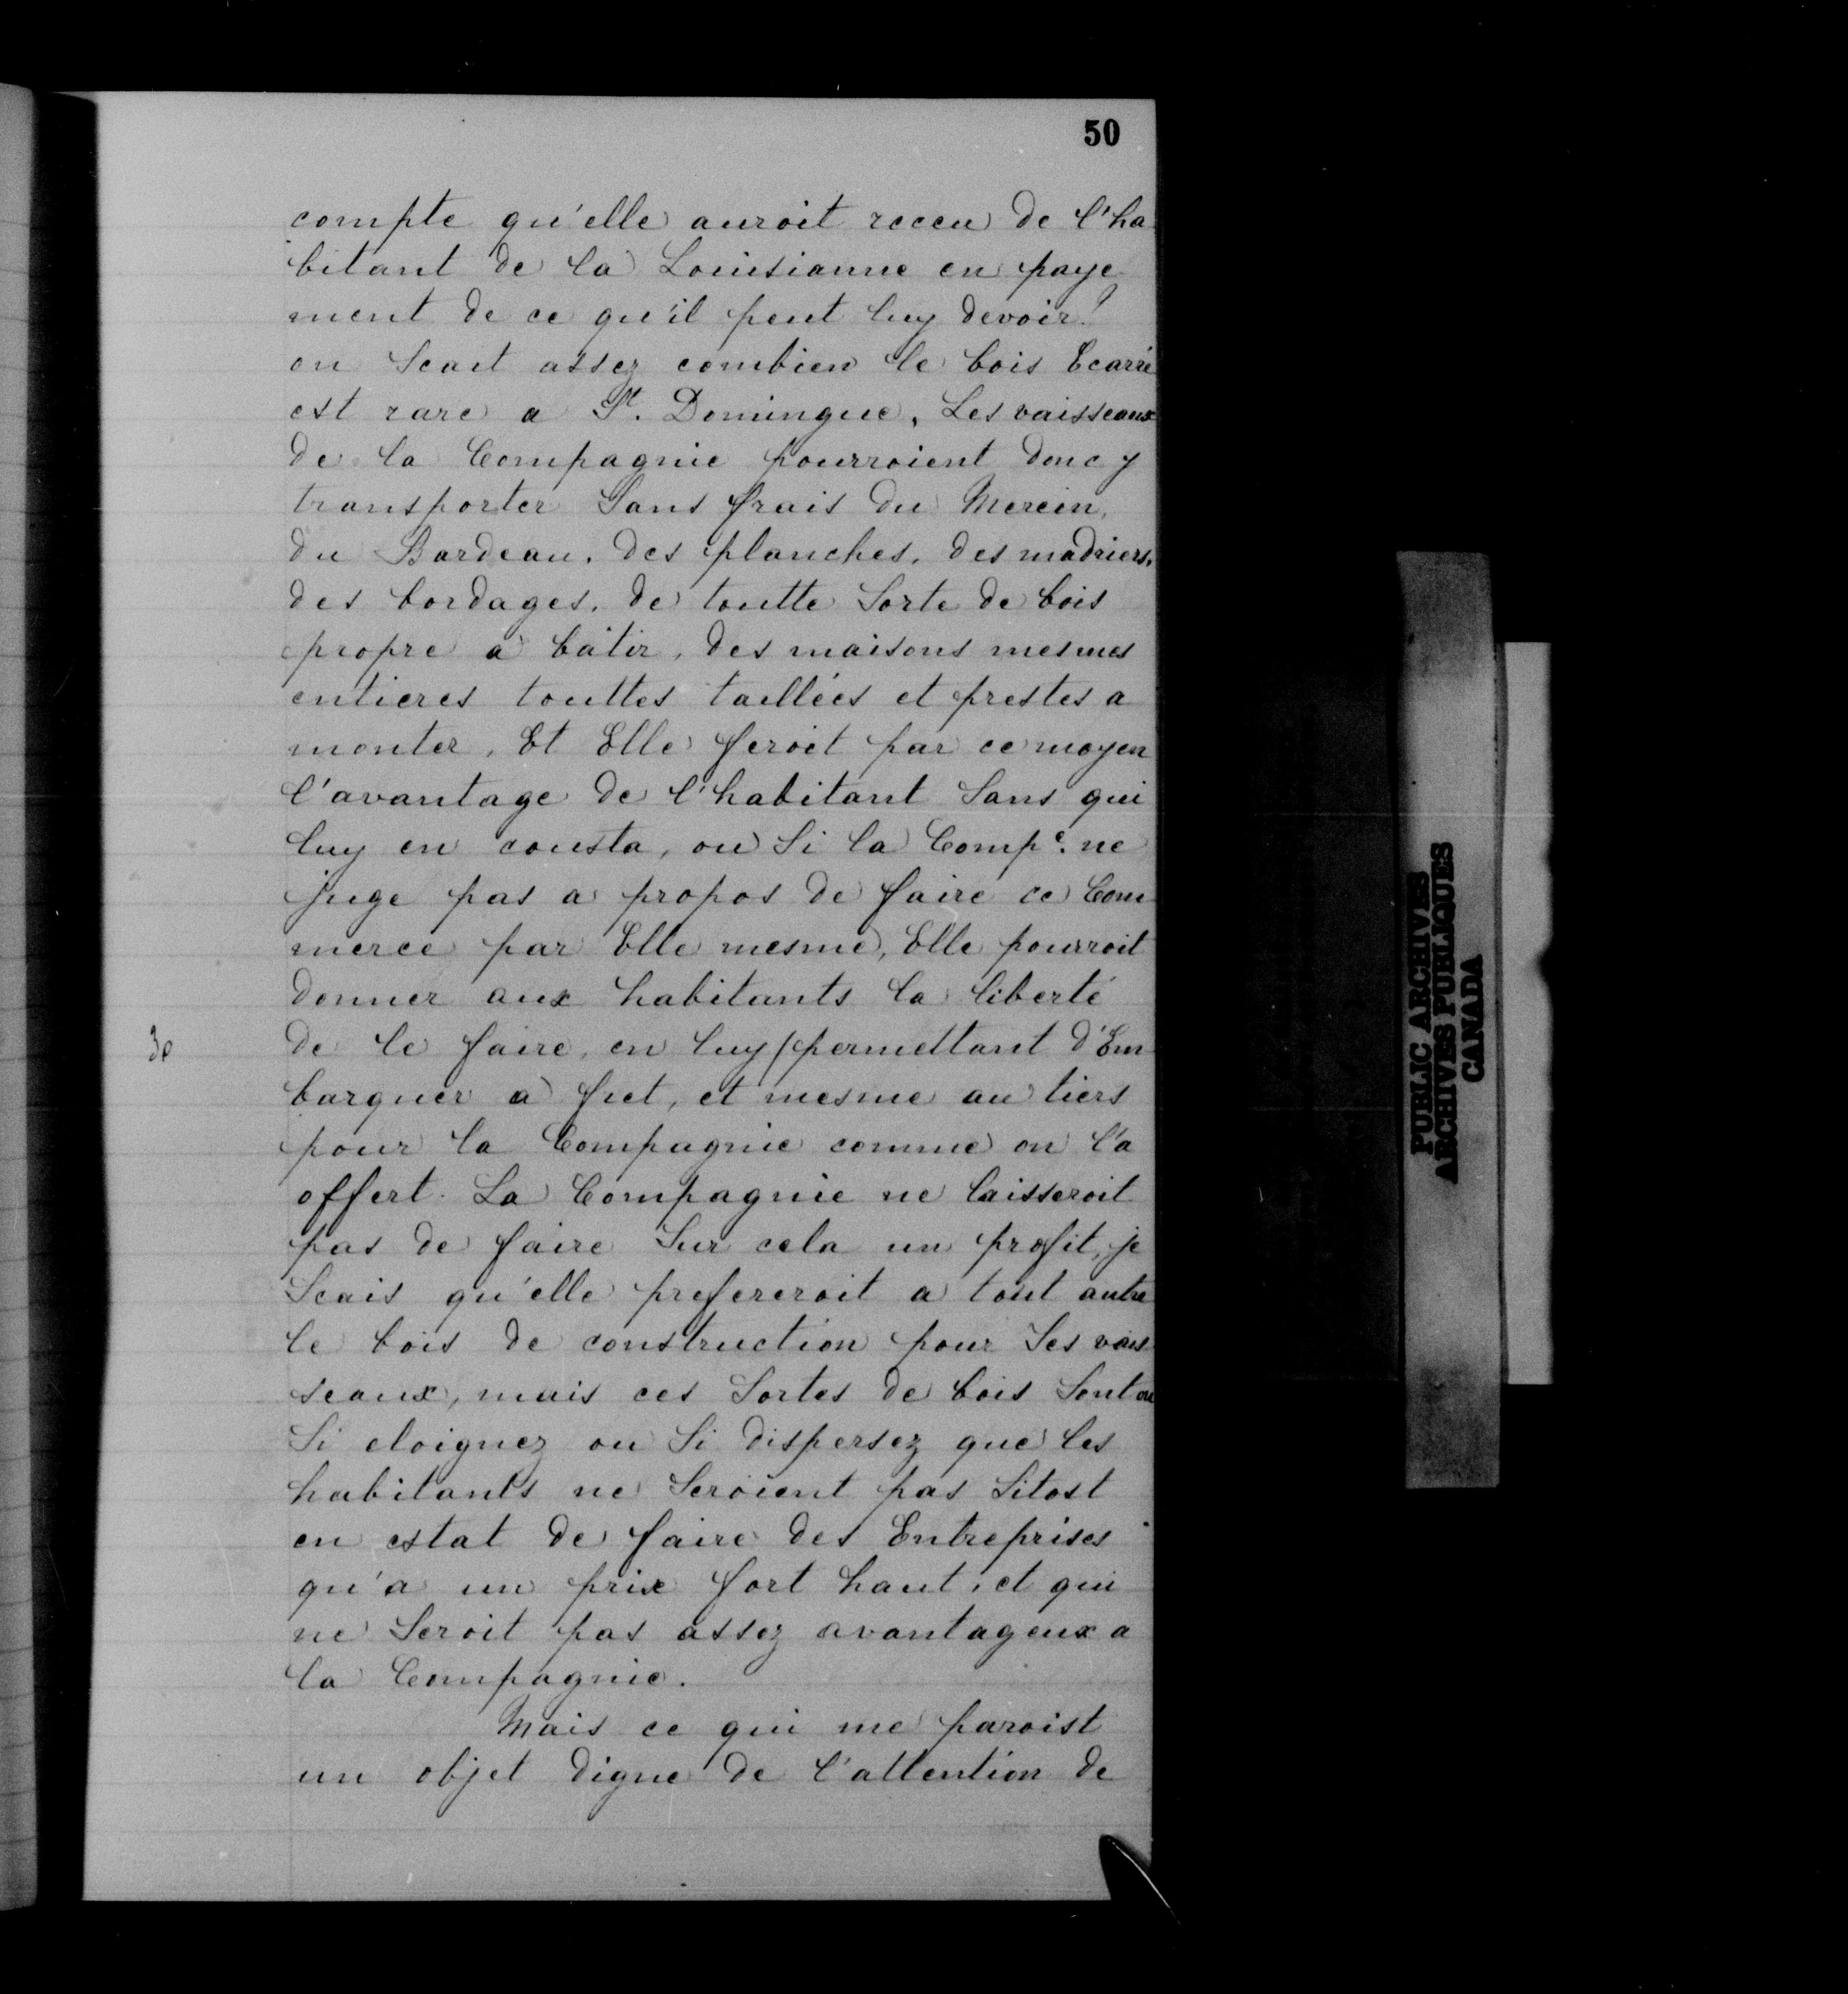 50
compte qu'elle auroit receu de l'ha
bitant de la Louisianne en paye
ment de ce qu'il peut luy devoir?
on Scait assez combien le bois Ecarré
est rare a St. Domingue, Les vaisseaux
de la Compagnie pourroient donc y
transporter Sans frais du Merein,
du Bardeau, des planches, des madriers,
des bordages, de toutte Sorte de bois
propre a bâtir, des maisons mesmes
entieres touttes taillées et prestes a
monter, Et Elle feroit par ce moyen
l'avantage de l'habitant Sans qui
luy en cousta, ou Si la Compe. ne
juge pas a propos de faire ce Com
merce par Elle mesme, Elle pourroit
donner aux habitants la liberté
3e
de le faire, en luy permettant d'Em
barquer a fret, et mesme au tiers
pour la Compagnie comme on l'a
offert. La Compagnie ne laisseroit
pas de faire Sur cela un profit, je
Scais qu'elle prefereroit a tout autre
le bois de construction pour Ses vais
seaux, mais ces Sortes de bois Sont ou
Si eloignez ou Si dispersez que les
habitants ne Seroient pas Sitost
en estat de faire des Entreprises
qu'a un prix fort haut, et qui
ne Seroit pas assez avantageux a
la Compagnie.
Mais ce qui me paroist
un objet digne de l'attention de
PUBLIC ARCHIVES
ARCHIVES PUBLIQUES
CANADA